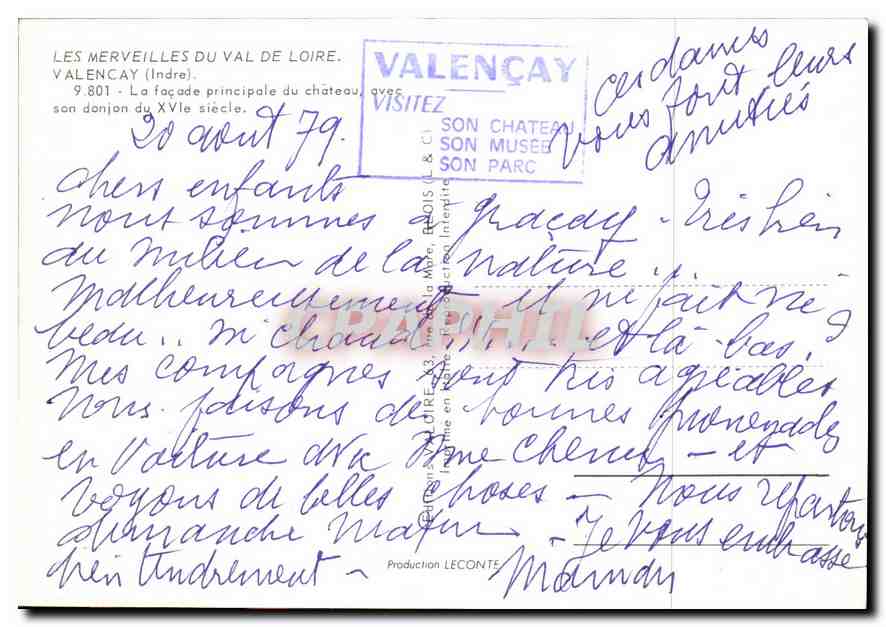 LES MERVEILLES DU VAL DE LOIRE.
VALENCAY (Indre).
9.801 - La façade principale du château, avec
son donjon du XVIe siècle.
VALENÇAY
VISITEZ
SON CHATEAU
SON MUSÉE
SON PARC
Ces dames
vous font leurs
amitiés
20 aout 79.
chers enfants
nous sommes à Graçay - très bien
au milieu de la nature ..
malheureusement il ne fait ni
beau .. ni chaud !.... et là-bas ?
Mes compagnes sont très agréables
Nous faisons de bonnes promenades
en voiture avec Mme - et
voyons de belles choses - Nous repartons
dimanche matin - Je vous embrasse
bien tendrement - Maman
Editions VALOIRE, 63, rue de la Mare, BLOIS (L & C)
Imprimé en Italie - Reproduction Interdite
CPAPHIL
Production LECONTE